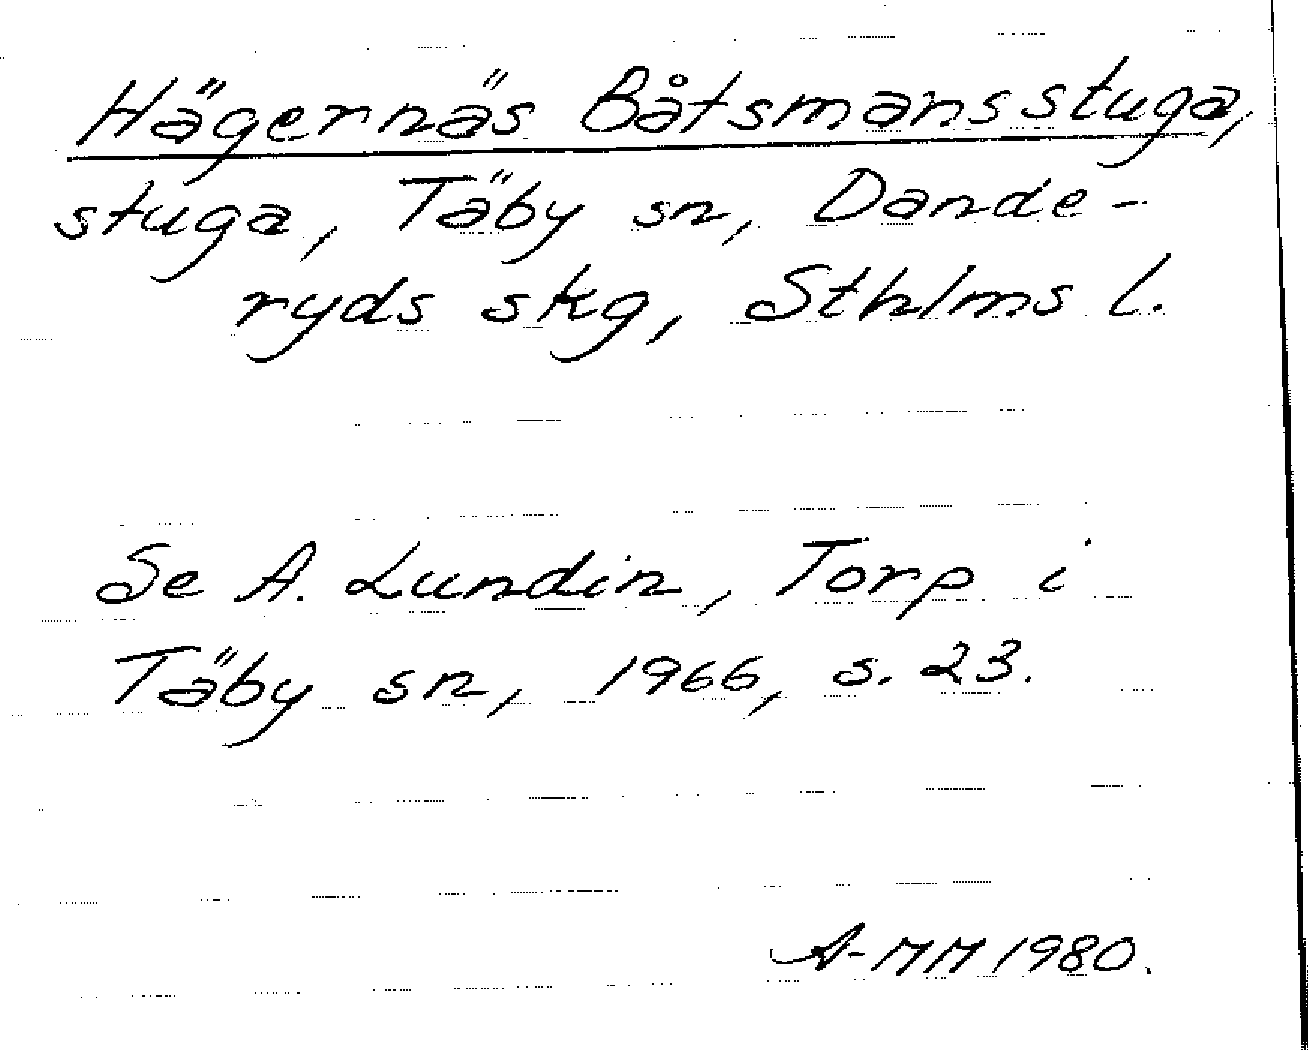 Hägernäs Båtsmansstuga,
stuga, Täby sn, Dande-
ryds skg, Sthlms l.
Se A. Lundin, Torp i
Täby sn, 1966, s. 23.
A-MM 1980.